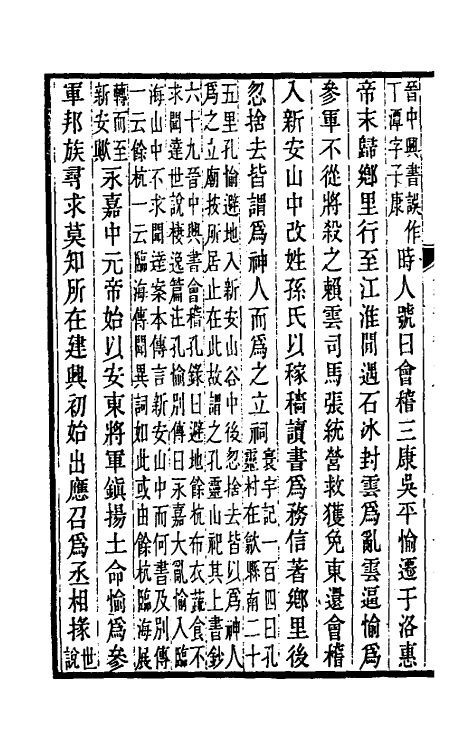 晉中興書誤作
丁潭字子康
時人號曰會稽三康吳平愉遷于洛惠
帝末歸鄉里行至江淮閒遇石冰封雲爲亂雲逼愉爲
參軍不從將殺之賴雲司馬張統營救獲免東還會稽
入新安山中改姓孫氏以稼穡讀書爲務信著鄉里後
忽捨去皆謂爲神人而爲之立祠
寰宇記一百四曰孔
靈村在歙縣南二十
五里孔愉避地入新安山谷中後忽捨去皆以爲神人
爲之立廟按所居止在此故謂之孔靈山祀其上書鈔
六十九晉中興書會稽孔錄曰避地餘杭布衣蔬食不
求聞達世說棲逸篇注孔愉別傳曰永嘉大亂愉入臨
海山中不求聞達案本傳言新安山中而何書及別傳
一云餘杭一云臨海傳聞異詞如此或由餘杭臨海展
轉而至
新安歟
永嘉中元帝始以安東將軍鎮揚土命愉爲參
軍邦族尋求莫知所在建興初始出應召爲丞相掾
世
說